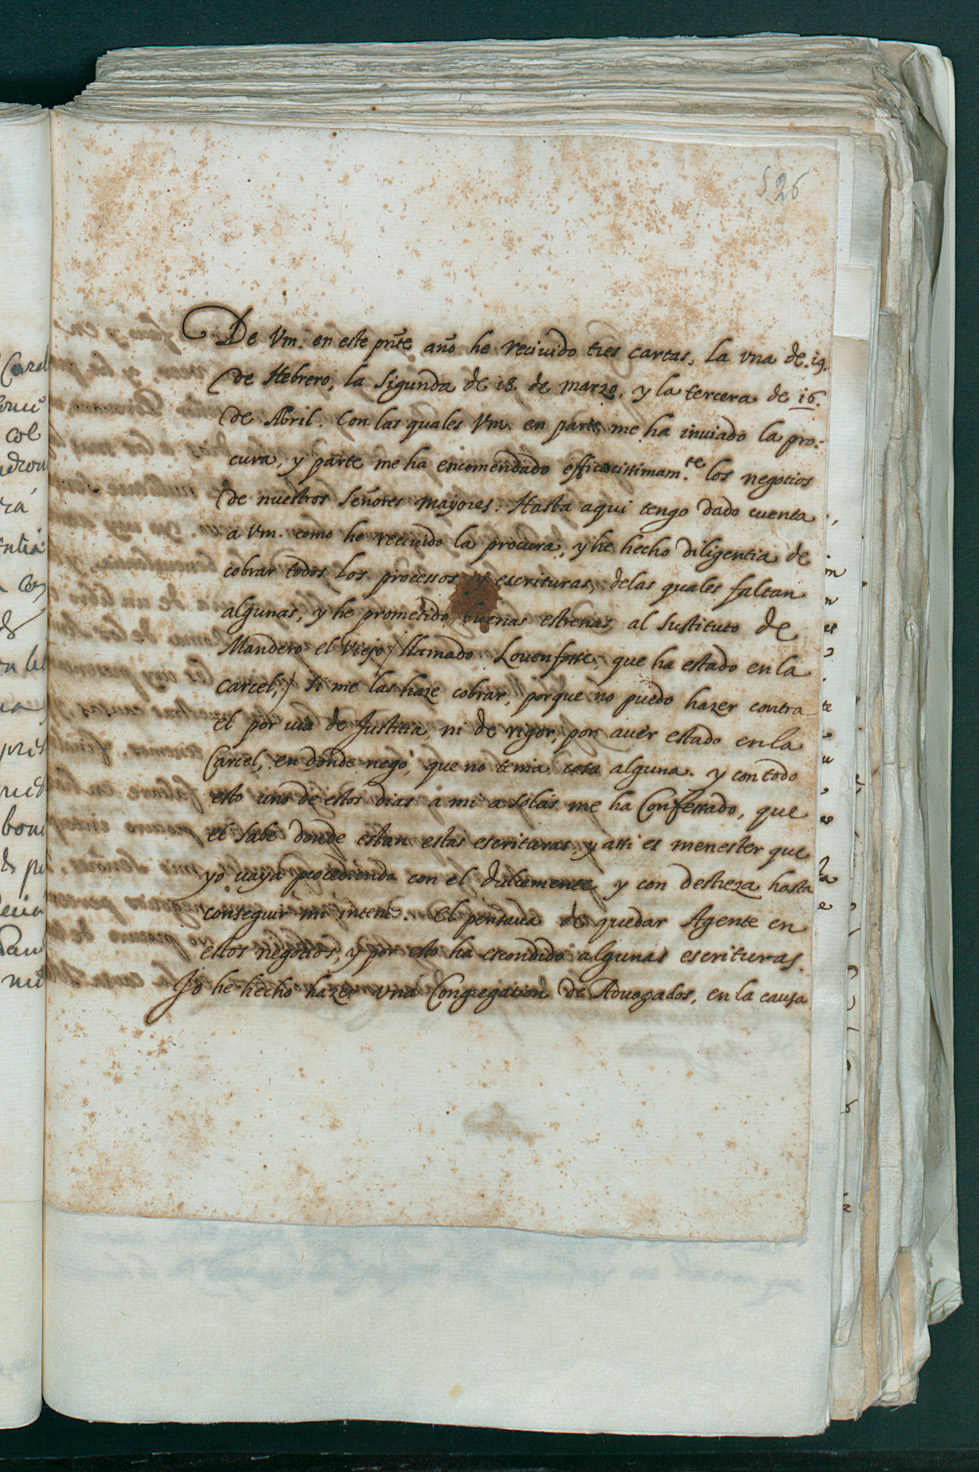 526
De Vm. en este pnte año he reciuido tres cartas, la vna de .19.
de Hebrero, la sigunda de 18. de marzo, y la tercera de 16.
de Abril. Con las quales Vm. en parte me ha inuiado la pro-
cura, y parte me ha encomendado efficacissimam.te los negotios
de nuestros señores mayores. Hasta aqui tengo dado cuenta
a Vm. como he reciuido la procura, y he hecho diligentia de
cobrar todos los processos y escrituras, delas quales faltan
algunas, y he prometido buenas estrenas al sustituto de
Mandero el Viejo / llamado que ha estado en la
carcel, / si me las haze cobrar, porque no puedo hazer contra
el por via de Justicia ni de rigor, por auer estado en la
Carcel, en donde negó, que no tenia cosa alguna. y con todo
esto uno de estos dias a mi a solas me ha Confessado, que
el sabe donde estan estas escrituras y assi es menester que
yo uaya procediendo con el dulcemente y con destreza hasta
conseguir mi intento. El pensaua de quedar Agente en
estos negotios, y por esto ha escondido algunas escrituras.
Jo he hecho hazer vna Congregation de Aduogados, en la causa